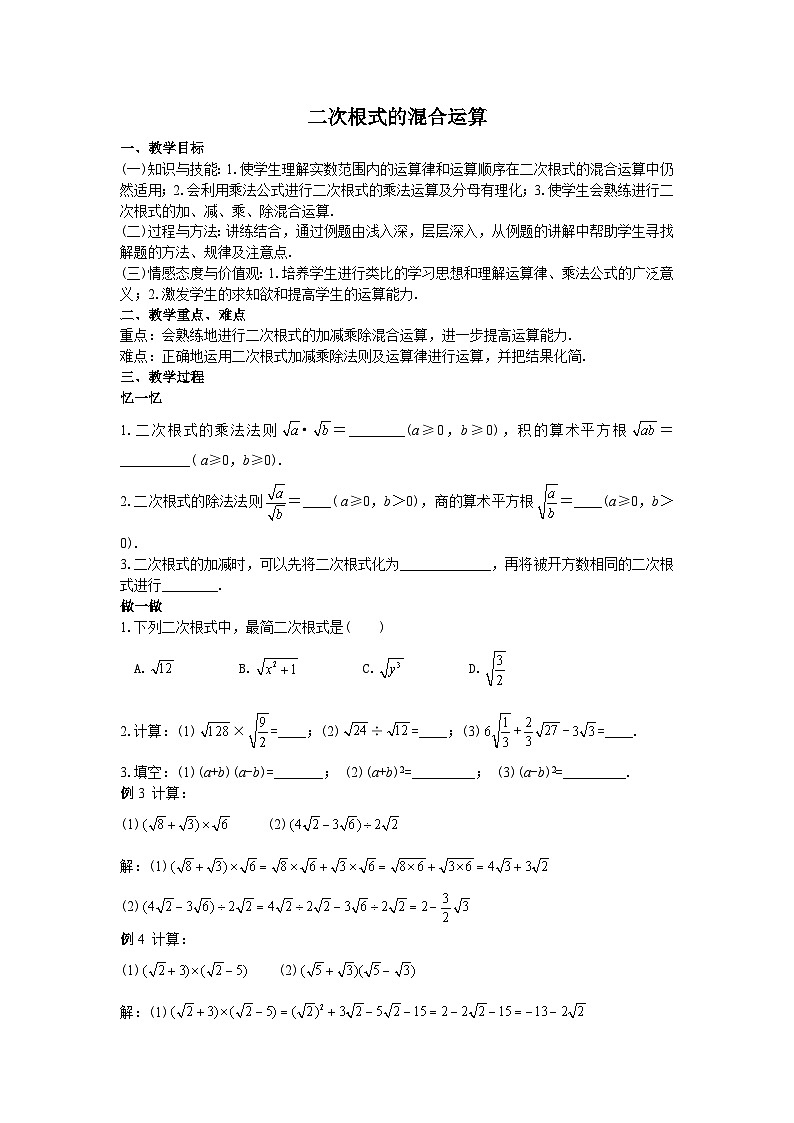 二次根式的混合运算
一、教学目标
(一)知识与技能:1.使学生理解实数范围内的运算律和运算顺序在二次根式的混合运算中仍
然适用;2.会利用乘法公式进行二次根式的乘法运算及分母有理化;3.使学生会熟练进行二
次根式的加、减、乘、除混合运算.
(二)过程与方法:讲练结合，通过例题由浅入深，层层深入，从例题的讲解中帮助学生寻找
解题的方法、规律及注意点.
(三)情感态度与价值观:1.培养学生进行类比的学习思想和理解运算律、乘法公式的广泛意
义;2.激发学生的求知欲和提高学生的运算能力.
二、教学重点、难点
重点:会熟练地进行二次根式的加减乘除混合运算，进一步提高运算能力.
难点:正确地运用二次根式加减乘除法则及运算律进行运算，并把结果化简.
三、教学过程
忆一忆
1.二次根式的乘法法则√a·√b=________(a≥0,b≥0)，积的算术平方根√(ab)=
__________(a≥0,b≥0).
2.二次根式的除法法则√a/√b=____(a≥0,b>0)，商的算术平方根√(a/b)=____(a≥0,b>
0).
3.二次根式的加减时，可以先将二次根式化为_____________，再将被开方数相同的二次根
式进行________.
做一做
1.下列二次根式中，最简二次根式是(  )
A.√12 B.√(x²+1) C.√(y³) D.√(3/2)
2.计算:(1)√128×√(9/2)=____;(2)√24÷√12=____;(3)6√(1/3)+2/3√27-3√3=____.
3.填空:(1)(a+b)(a-b)=_______; (2)(a+b)²=_________; (3)(a-b)²=_________.
例3 计算:
(1)(√8+√3)×√6 (2)(4√2-3√6)÷2√2
解:(1)(√8+√3)×√6=√8×√6+√3×√6=√(8×6)+√(3×6)=4√3+3√2
(2)(4√2-3√6)÷2√2=4√2÷2√2-3√6÷2√2=2-3/2√3
例4 计算:
(1)(√2+3)×(√2-5) (2)(√5+√3)(√5-√3)
解:(1)(√2+3)×(√2-5)=(√2)²+3√2-5√2-15=2-2√2-15=-13-2√2